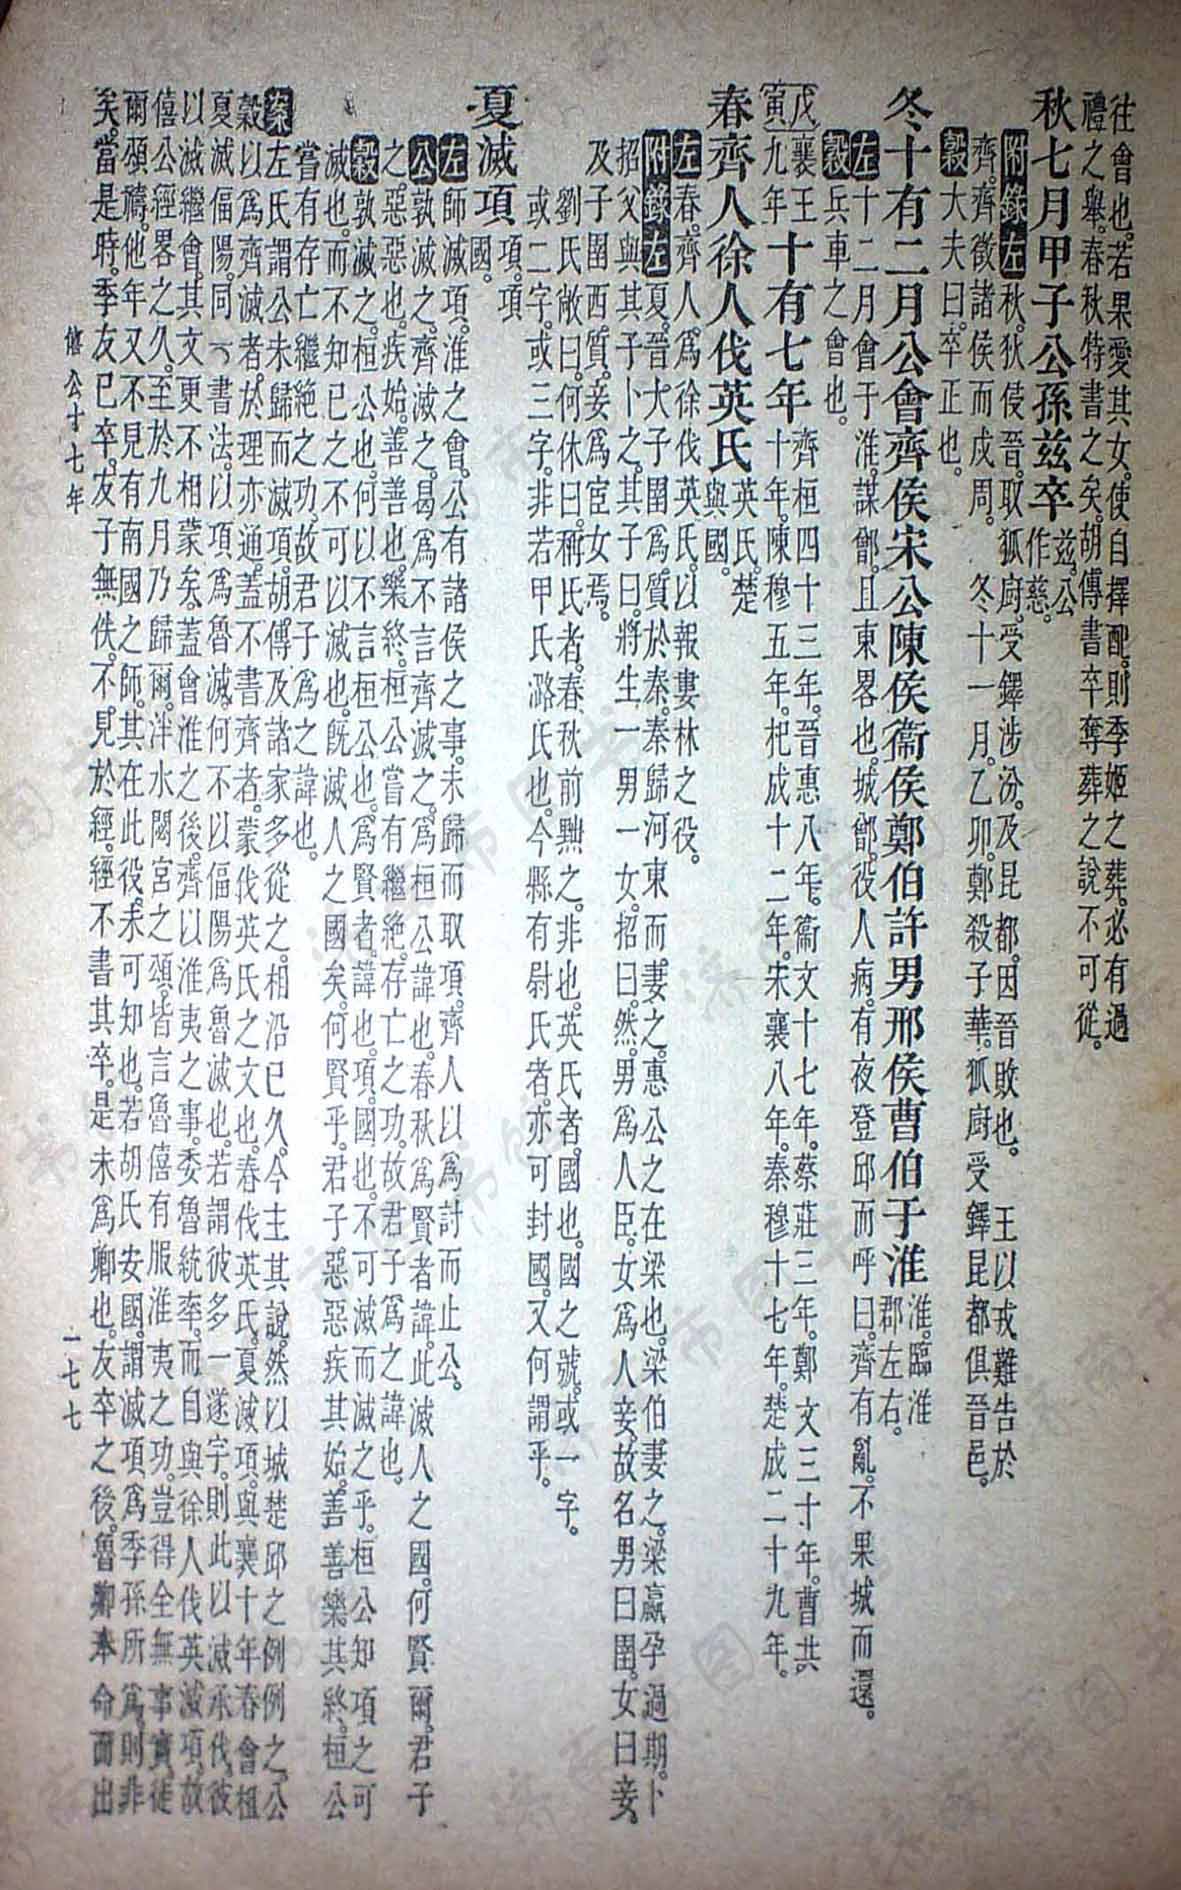 往會也。若果愛其女。使自擇配。則季姬之葬。必有過
禮之舉。春秋特書之矣。胡傳書卒奪葬之說不可從。
秋七月甲子公孫茲卒
茲。公
作慈。
附錄左秋。狄侵晉。取狐廚。受鐸涉汾。及昆都。因晉敗也。 王以戎難告於
齊。齊徵諸侯而戍周。 冬十一月。乙卯。鄭殺子華。狐廚受鐸昆都俱晉邑。
穀大夫曰。卒正也。
冬十有二月公會齊侯宋公陳侯衞侯鄭伯許男邢侯曹伯于淮
淮。臨淮
郡左右。
左十二月會于淮。謀鄫。且東畧也。城鄫。役人病。有夜登邱而呼曰。齊有亂。不果城而還。
穀兵車之會也。
戊寅
襄王
九年
十有七年
齊桓四十三年。晉惠八年。衞文十七年。蔡莊三年。鄭文三十年。曹共
十年。陳穆五年。杞成十二年。宋襄八年。秦穆十七年。楚成二十九年。
春齊人徐人伐英氏
英氏。楚
與國。
左春。齊人。爲徐伐英氏。以報婁林之役。
附錄左夏。晉大子圉爲質於秦。秦歸河東而妻之。惠公之在梁也。梁伯妻之。梁嬴孕過期。卜
招父與其子卜之。其子曰。將生一男一女。招曰。然。男爲人臣。女爲人妾。故名男曰圉。女曰妾。
及子圉西質。妾爲宦女焉。
劉氏敞曰。何休曰。稱氏者。春秋前黜之。非也。英氏者。國也。國之號。或一字。
或二字。或三字。非若甲氏潞氏也。今縣有尉氏者。亦可封國。又何謂乎。
夏滅項
項。項
國。
左師滅項。淮之會。公有諸侯之事。未歸而取項。齊人以爲討而止公。
公孰滅之。齊滅之。曷爲不言齊滅之。爲桓公諱也。春秋爲賢者諱。此滅人之國。何賢爾。君子
之惡惡也。疾始。善善也。樂終。桓公嘗有繼絕。存亡之功。故君子爲之諱也。
穀孰滅之。桓公也。何以不言桓公也。爲賢者。諱也。項。國也。不可滅而滅之乎。桓公知項之可
滅也。而不知已之不可以滅也。旣滅人之國矣。何賢乎。君子。惡惡疾其始。善善樂其終。桓公
嘗有存亡繼絕之功。故君子爲之諱也。
案左氏謂公未歸而滅項。胡傳及諸家多從之。相沿已久。今主其說。然以城楚邱之例例之。公
穀以爲齊滅者。於理亦通。蓋不書齊者。蒙伐英氏之文也。春伐英氏。夏滅項。與襄十年春會柤
夏滅偪陽。同一書法。以項爲魯滅。何不以偪陽爲魯滅也。若謂彼多一遂字。則此以滅承伐。彼
以滅繼會。其文更不相蒙矣。蓋會淮之後。齊以淮夷之事。委魯統率。而自與徐人伐英滅項。故
僖公經畧之久。至於九月乃歸爾。泮水閟宮之頌。皆言魯僖有服淮夷之功。豈得全無事實。徒
爾頌禱。他年又不見有南國之師。其在此役。未可知也。若胡氏安國。謂滅項爲季孫所爲。則非
矣。當是時。季友已卒。友子無佚。不見於經。經不書其卒。是未爲卿也。友卒之後。魯卿奉命而出
僖公十七年
一七七